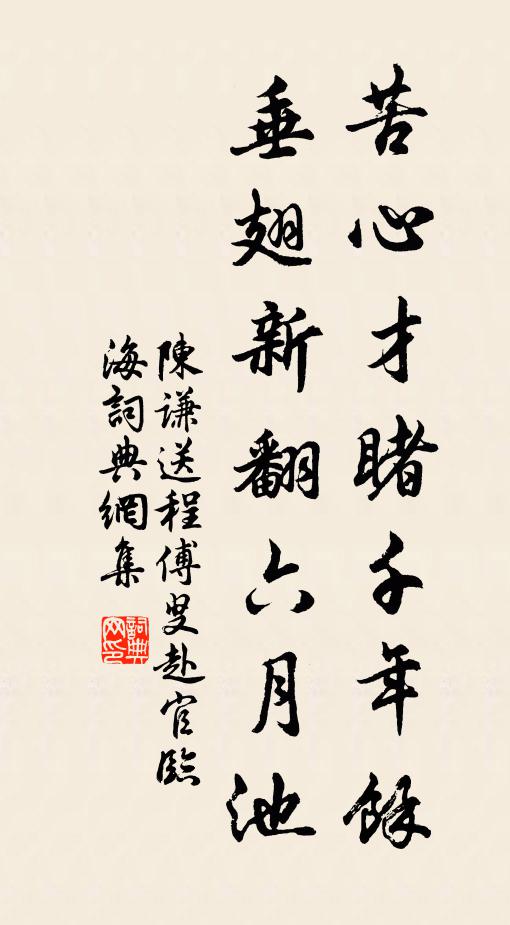 苦心才睹千年餘
垂翅新翻六月池
陳謙送程傅叟赴官臨
海詞典網集
詞典網印